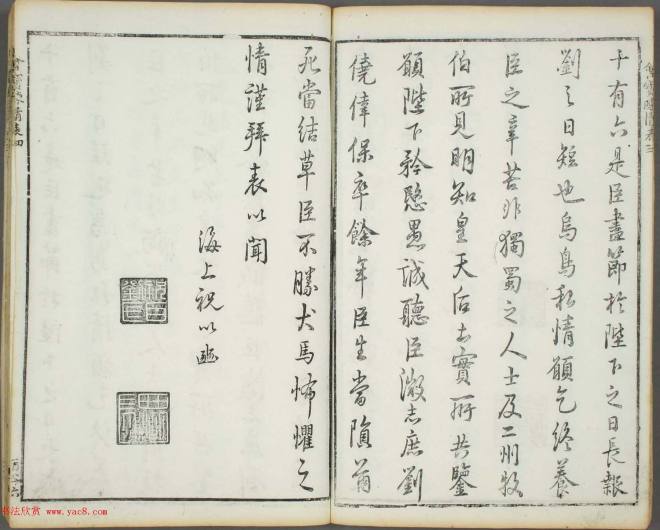 十有六是臣盡節於陛下之日長報
劉之日短也烏鳥私情願乞終養
臣之辛苦非獨蜀之人士及二州牧
伯所見明知皇天后土實所共鑒
願陛下矜愍愚誠聽臣微志庶劉
僥倖保卒餘年臣生當隕首
死當結草臣不勝犬馬怖懼之
情謹拜表以聞
海上祝以豳
书法欣赏 www.yac8.com